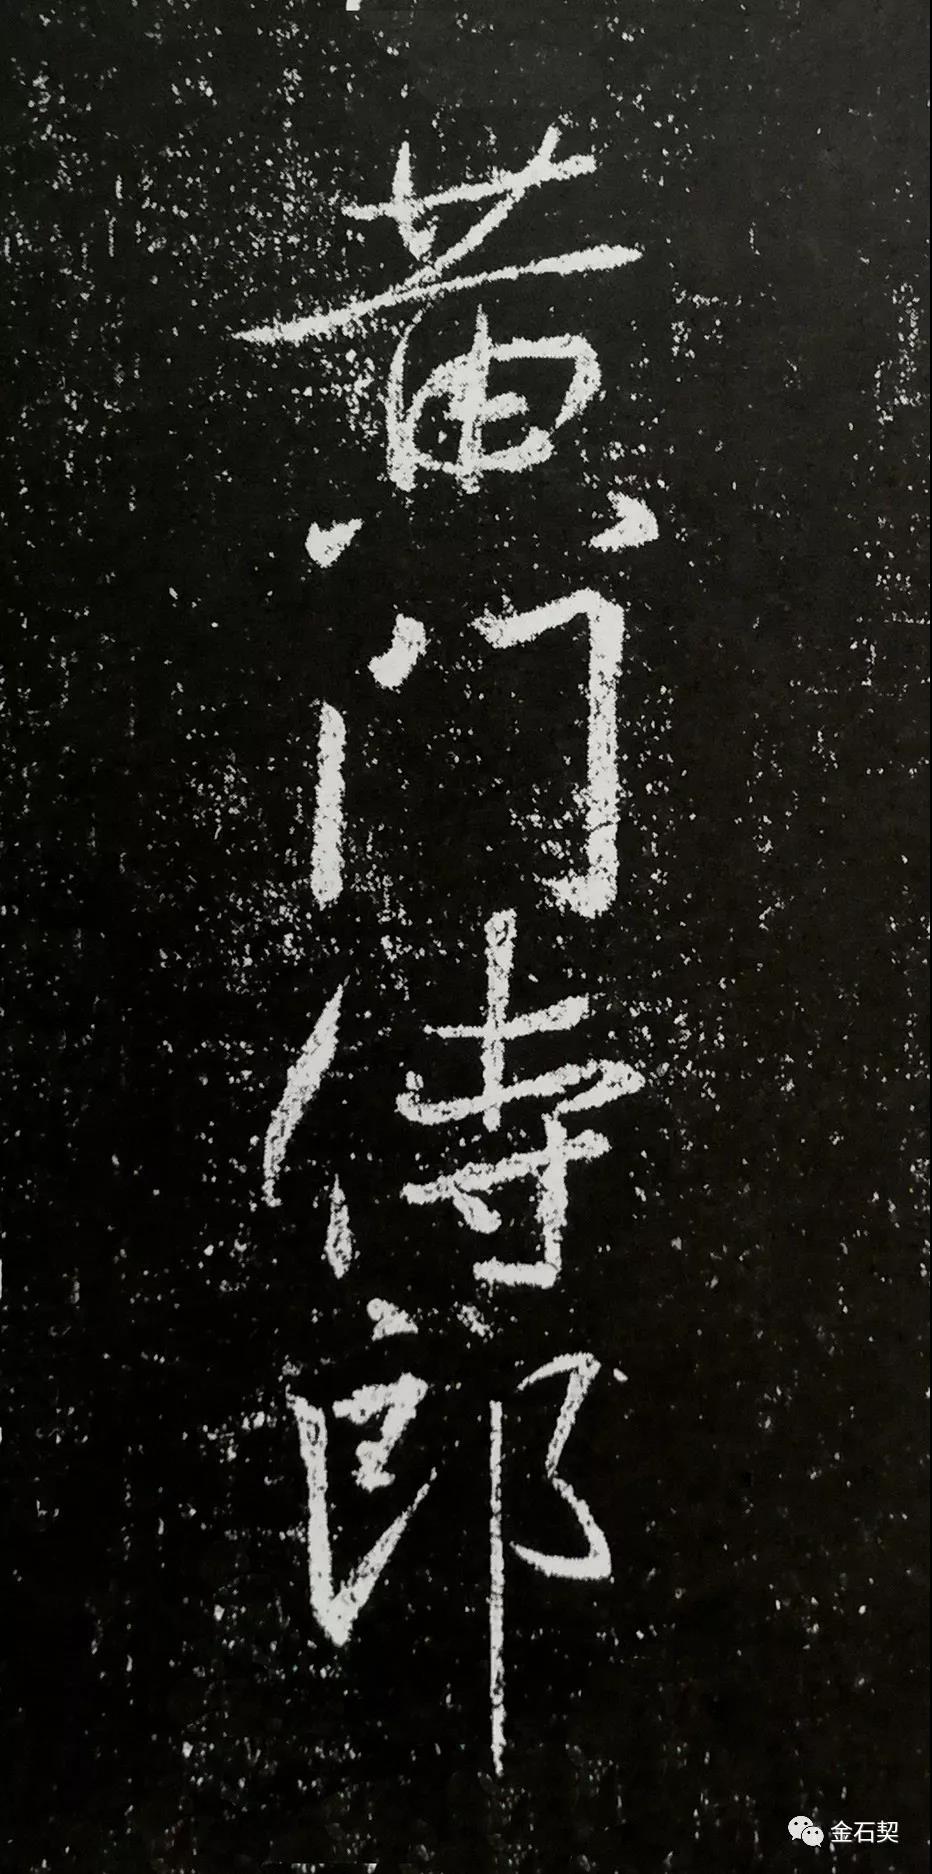 黄门侍郎
金石契